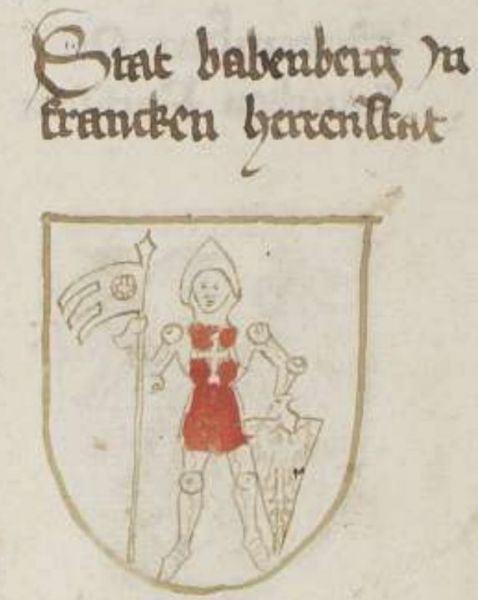 Stat babenberg jn
francken herrenstat